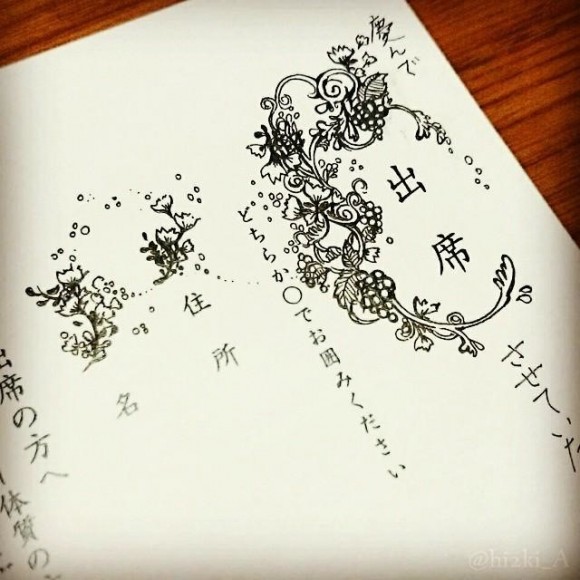 慶んで
出席
させていた
どちらか○でお囲みください
住所
名
出席の方へ
体質の
@hi2ki_A